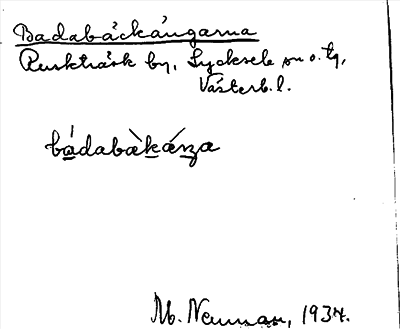 Badabäckängarna
Punkträsk by, Lycksele sn o. tg,
Västerb. l.
bádabàkáŋa
M. Neuman, 1934.